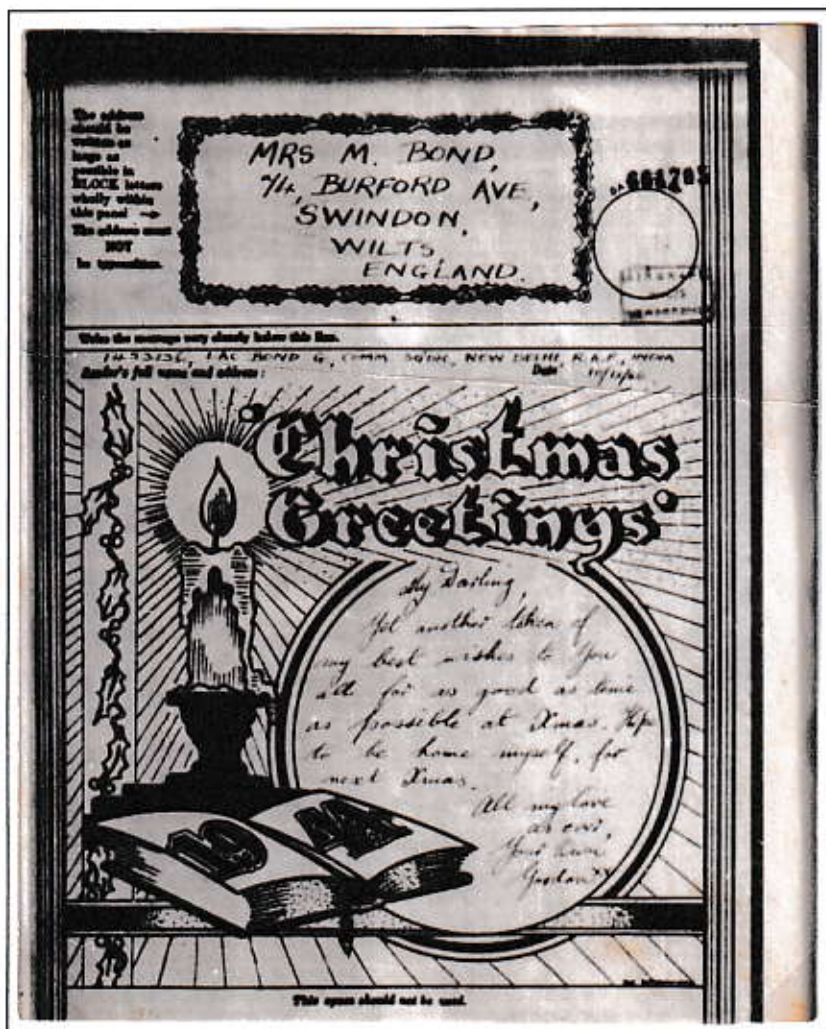 The address
should be
written as
large as
possible in
BLOCK letters
wholly within
this panel →
The address must
NOT
be typewritten.
MRS M. BOND,
BURFORD AVE,
SWINDON,
WILTS
ENGLAND.
Write the message very plainly below this line.
LAC BOND G, COMM SQDN, NEW DELHI, R.A.F., INDIA
Sender's full name and address :
Date
"Christmas
Greetings"
My Darling,
Yet another token of
my best wishes to You
all for as good as time
as possible at Xmas. Hope
to be home myself, for
next Xmas.
All my love
as ever,
Your Own
Gordon xx
19
This space should not be used.